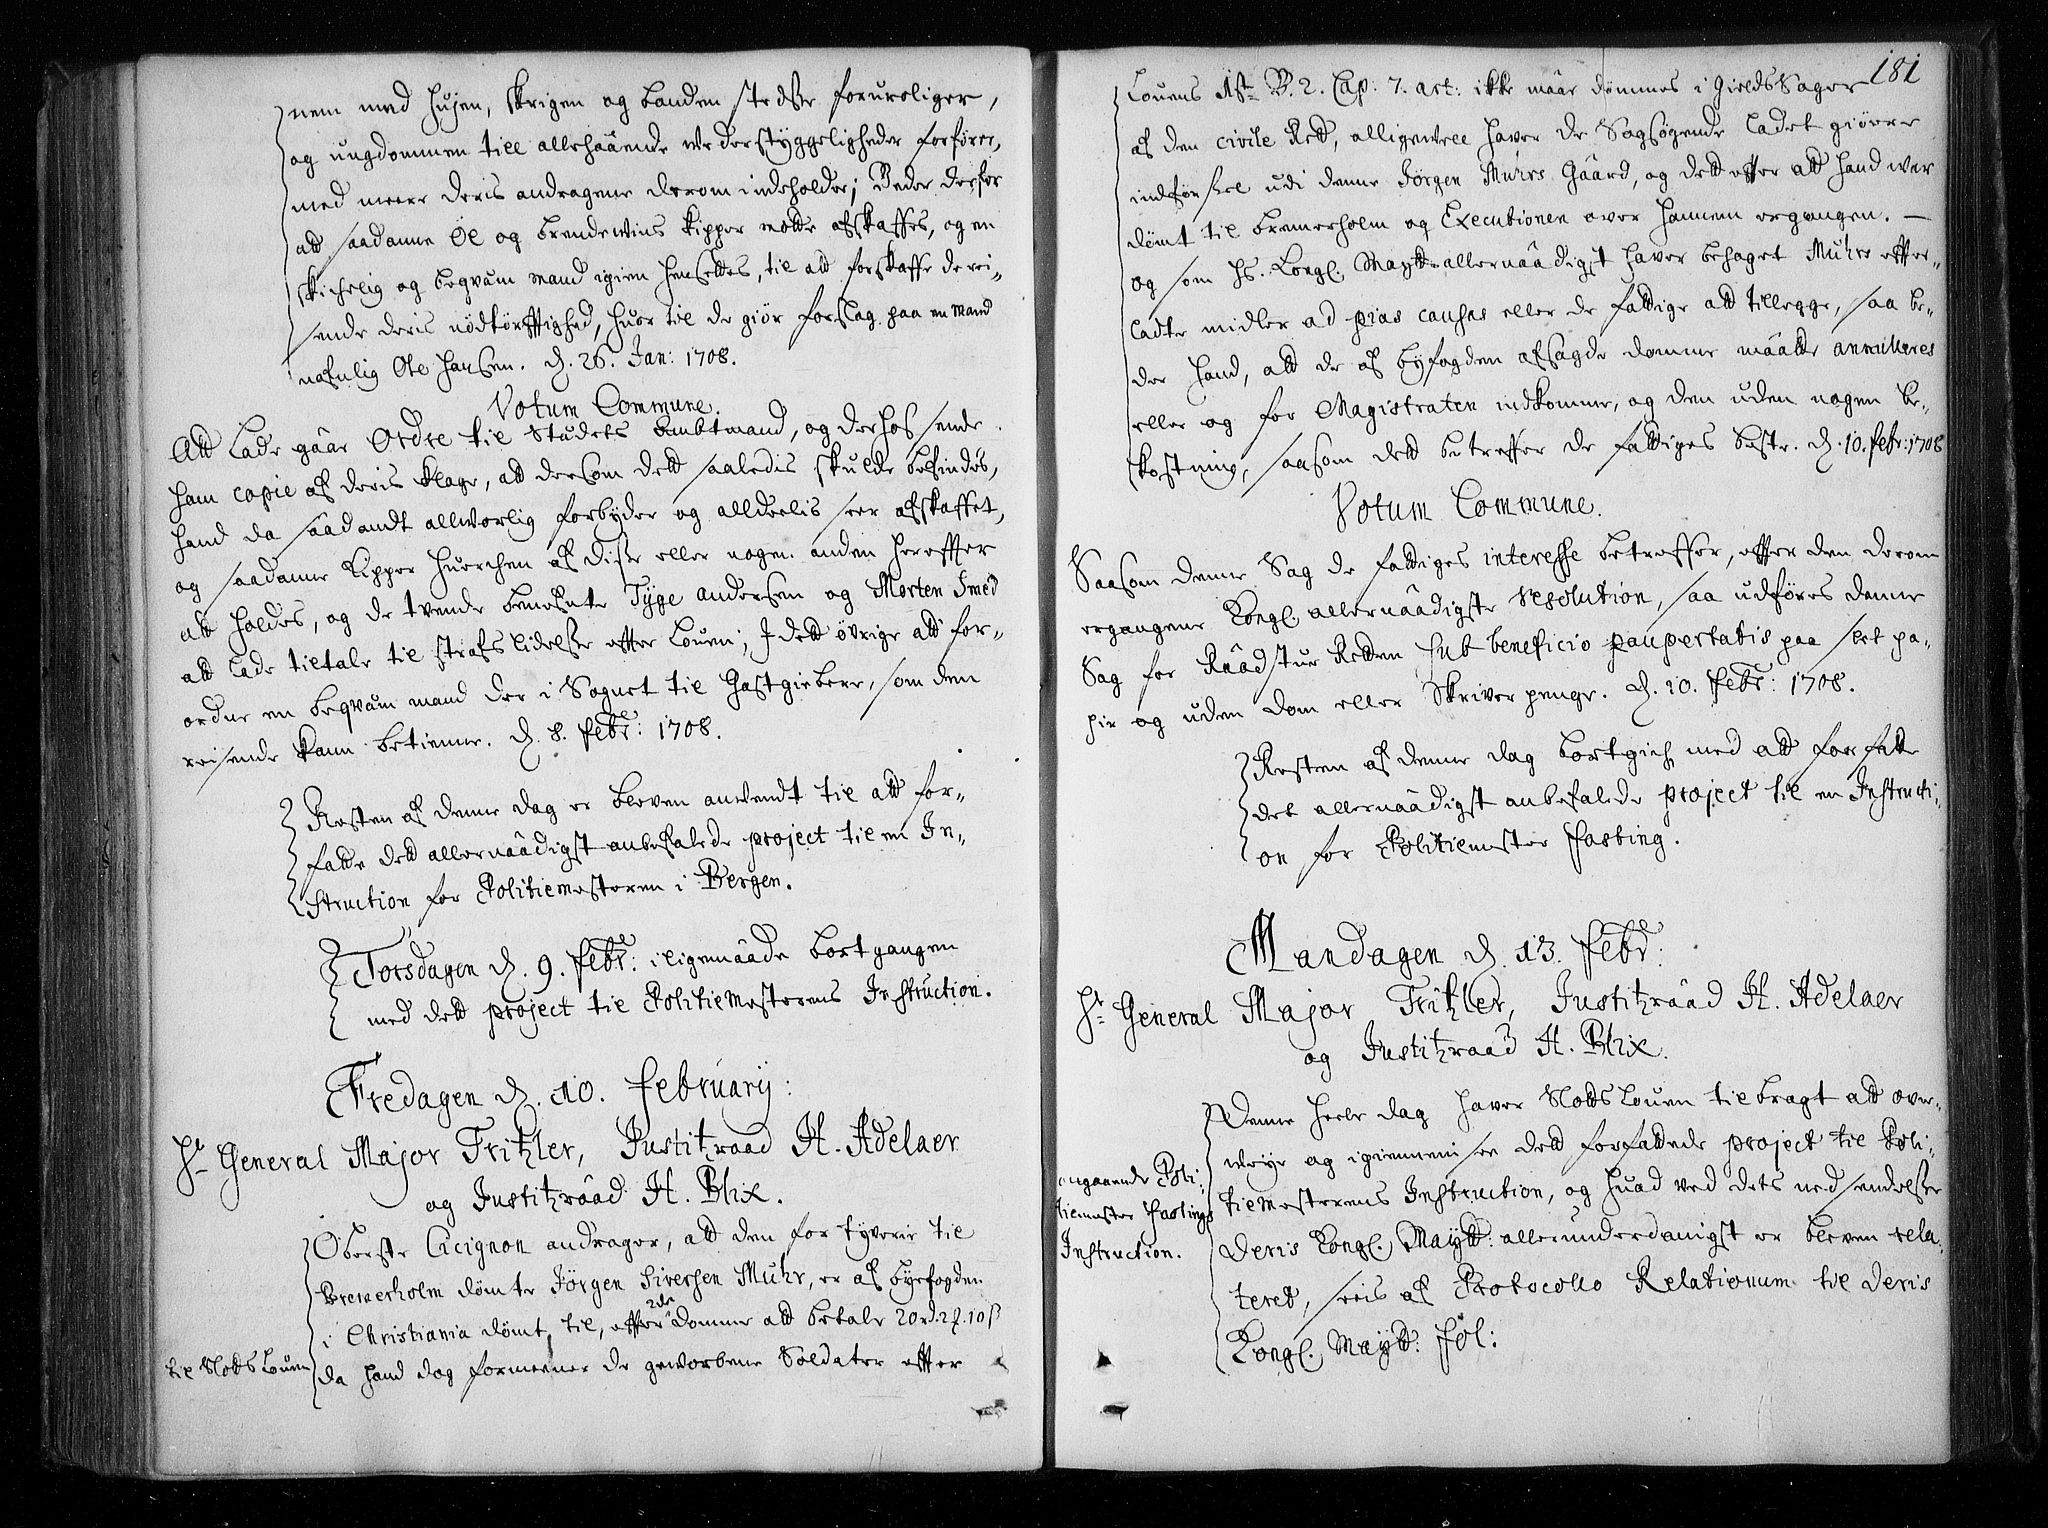 nem med hujen, skrigen og banden stedsse foruroliger,
og ungdommen till allehaãnde wederstyggeligheder forfører,
med meere deris andragene derom indeholder; Beder derfor
att saadanne Øl og brendewins kipper motte afskaffes, og en
skichelig og beqvãm mand igien hensettes, til att forskaffe de rei-
sende deris nödtörfftighed, huor til de giör forslag paa en Mand
nafnlig Ole Hansen. d. 26. Jan: 1708.
Votum Commune.
Att lade gaãr Ordre til Stüdets Ambtmand, og derhos sende
ham copie af deris klage, att dersom dett saaledis skulde befindes,
hand da saãdandt allworlig forbyder og alldeelis seer afskaffet,
og saadanne kipper huerchen af disse eller nogen anden hereffter
att holdes, og de tvende benefnte Tÿge andersen og Morten Smed
att lade tiltale til strafs lidelsse effter Louen; J dett øvrige att for-
ordne en beqvãm mand der i Sognet til Gastgiebere, som den
reisende kann betienne. d. 8. febr: 1708.
Resten af denne dag er bleven anvendt til att for-
fatte dett allernaãdigst anbefalede project til en In-
struction for Politiemesteren i Bergen.
Torsdagen d. 9. febr: iligemaãde bortgangen
med dett project til Politiemesterens Instruction.
Fredagen d. 10. februarij:
Hr General Major Tritzler, Justitzraad H. Adelaer
og Justitzraãd H. Blix.
Oberste Cicignon andrager, att den for tyverie til
Bremerholm dømte Jörgen Siversen Muhr, er af byefogden
i Christiania dømt til, effter 2de Domme att betale 20 rd. 2 ƒ. 10 ß
til Slotts Louen
da hand dog formeener de geworbene Soldater effter
181
Louens 1ste B. 2. Cap: 7. art: ikke maãe dømmes i Gields Sager
af den civile Rett, alligevell haver de Sagsøgende ladet giöre
indførssel udi denne Jörgen Muhrs Gaãrd, og dett effter att hand war
dømt til bremerholm og Executionen over hannem ergangen. —
og som Hs. Kongl. Maytt allernaãdigst haver behaget Muhrs effter-
ladte midler ad pias causas eller de fattige att tillegge, saa be-
der hand, att de af byfogden afsagde domme maãtte annulleres
eller og for Magistraten indkomme, og den uden nogen be-
kostning, saasom dett betreffer de fattiges beste. d. 10. febr: 1708
Votum Commune.
Saasom denne Sag de fattiges interesse betreffer, effter den derom
ergangene Kongl. allernaãdigste resolution, saa udføres denne
Sag for Raãdstue Retten sub beneficio paupertatis paa slet pa-
pir og uden dom eller Skriver penge. d. 10. febr: 1708.
Resten af denne dag bortgich med att forfatte
det allernaãdigst anbefalede project til en Instructi-
on for Politiemester Fasting.
Mandagen d. 13. febr:
Hr General Major Tritzler, Justitzraãd H. Adelaer
og Justitzraad H. Blix.
Denne heele dag haver Slotts Louen tilbragt att over-
weye og igiennemsee dett forfattede project til Poli-
angaaende Poli-
tiemester Fastings
Instruction.
tiemesterens Instruction, og huad ved dets nedsendelsse
Deris Kongl. Maytt: allerunderdanigst er bleven rela-
teret, sees af Protocollo Relationum til Deris
Kongl. Maytt: föl: